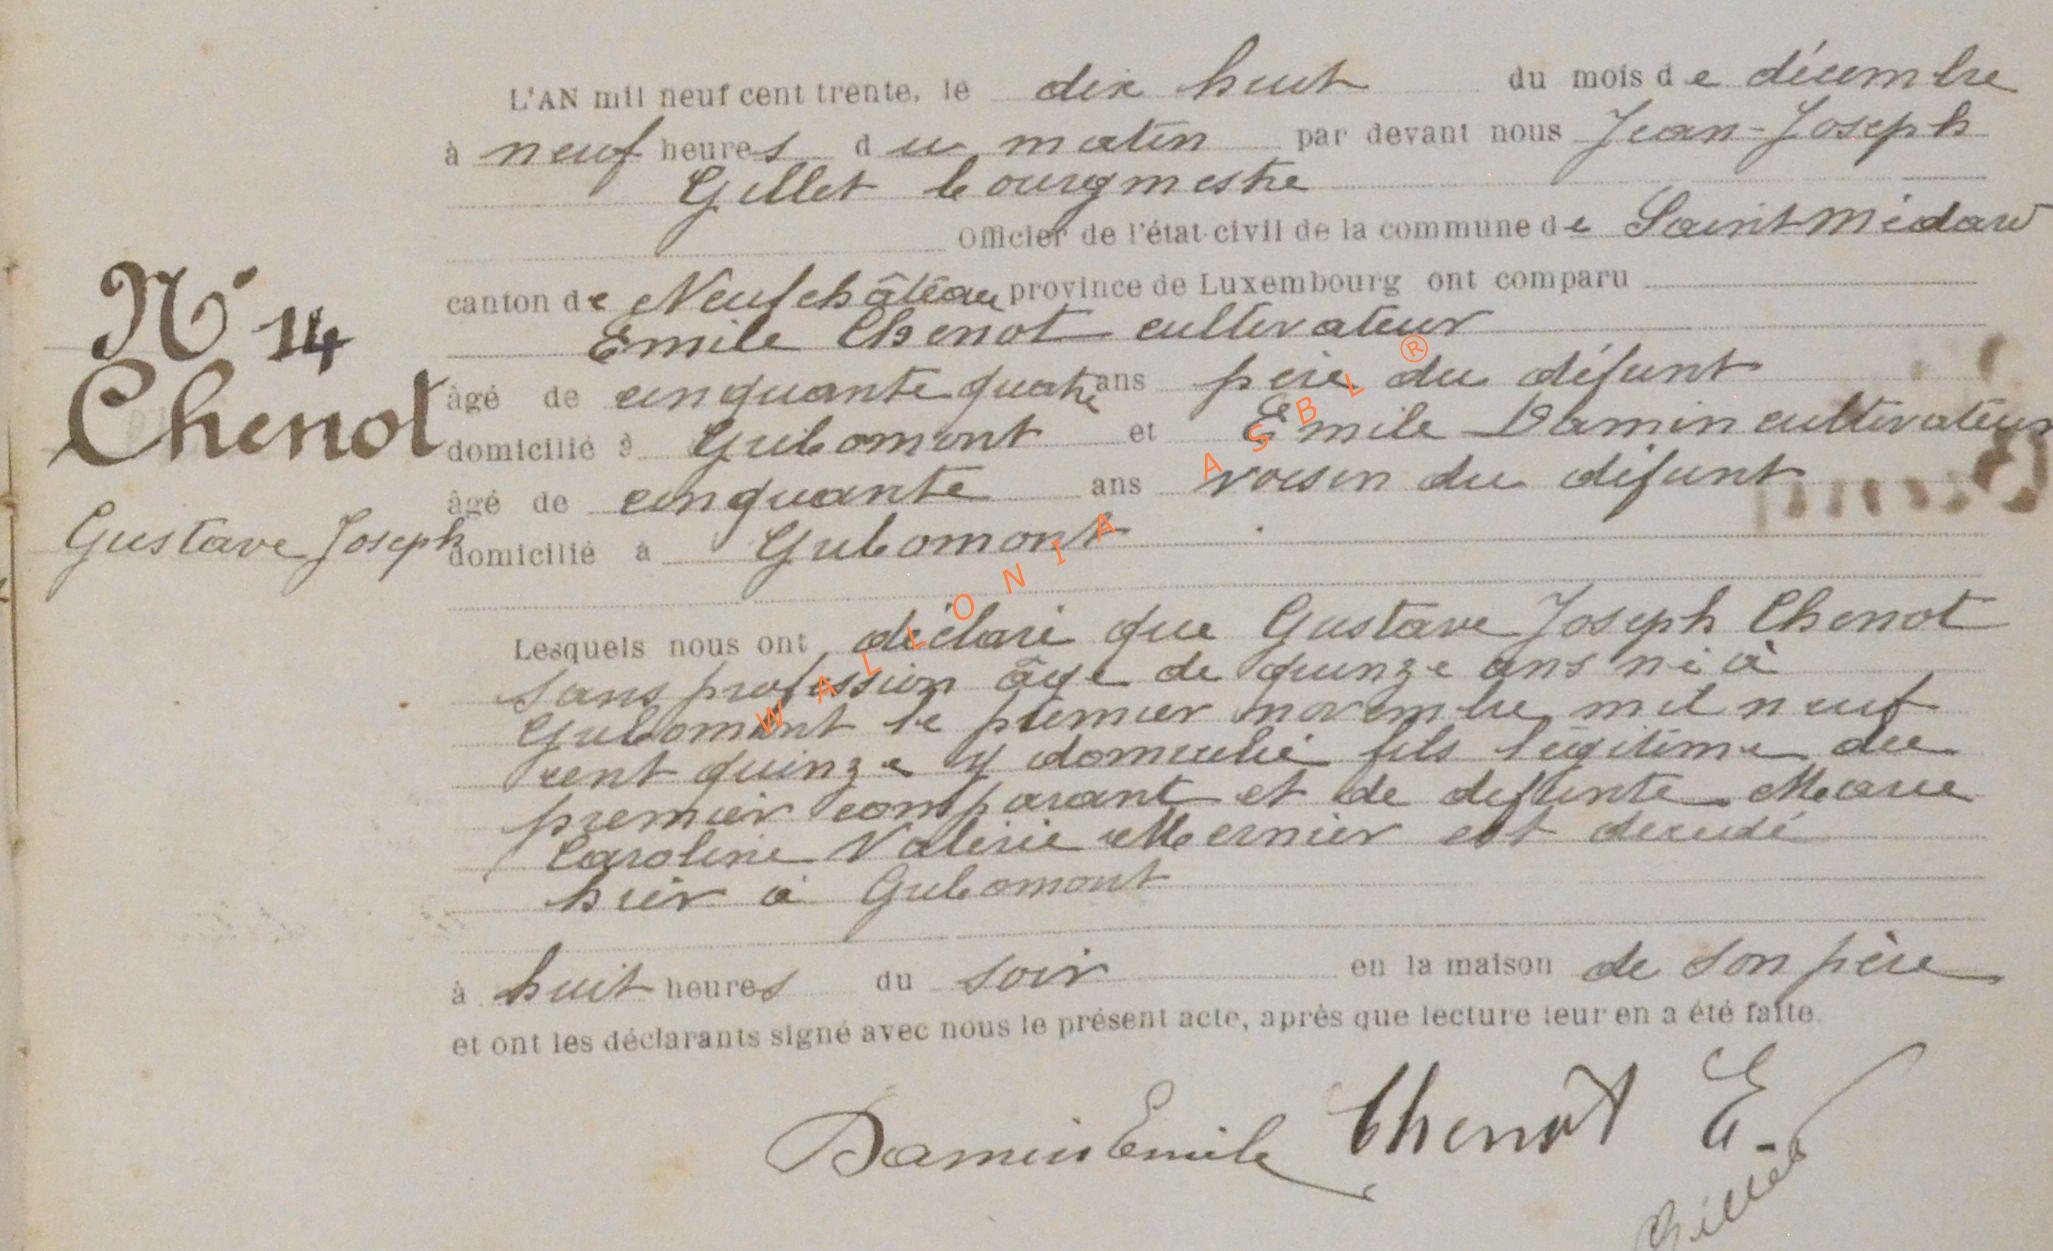 L'AN mil neuf cent trente, le dix huit du mois de décembre
à neuf heures du matin par devant nous Jean-Joseph
Gillet bourgmestre
Officier de l'état-civil de la commune de Saint Médard
canton de Neufchâteau province de Luxembourg ont comparu
Emile Chenot cultivateur
âgé de cinquante quatre ans père du défunt
domicilié à Gribomont et Emile Damin cultivateur
âgé de cinquante ans voisin du défunt
domicilié à Gribomont
N° 14
Chenot
Gustave Joseph
Lesquels nous ont déclaré que Gustave Joseph Chenot
sans profession âgé de quinze ans né à
Gribomont le premier novembre mil neuf
cent quinze y domicilié fils légitime du
premier comparant et de defunte Marie
Caroline Valérie Mernier est décédé
hier à Gribomont
à huit heures du soir en la maison de son père
et ont les déclarants signé avec nous le présent acte, après que lecture leur en a été faite.
Damin Emile Chenot E.
Gillet
WALLONIA ASBL ®